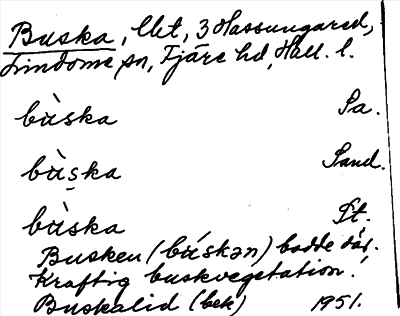 Buska, lht, 3 Hassungared,
Lindome sn, Fjäre hd, Hall. l.
bùska Sa.
bùska Sand.
bùska St.
Busken (búskən) bodde där.
Kraftig buskvegetation.
Buskalid (bek) 1951.